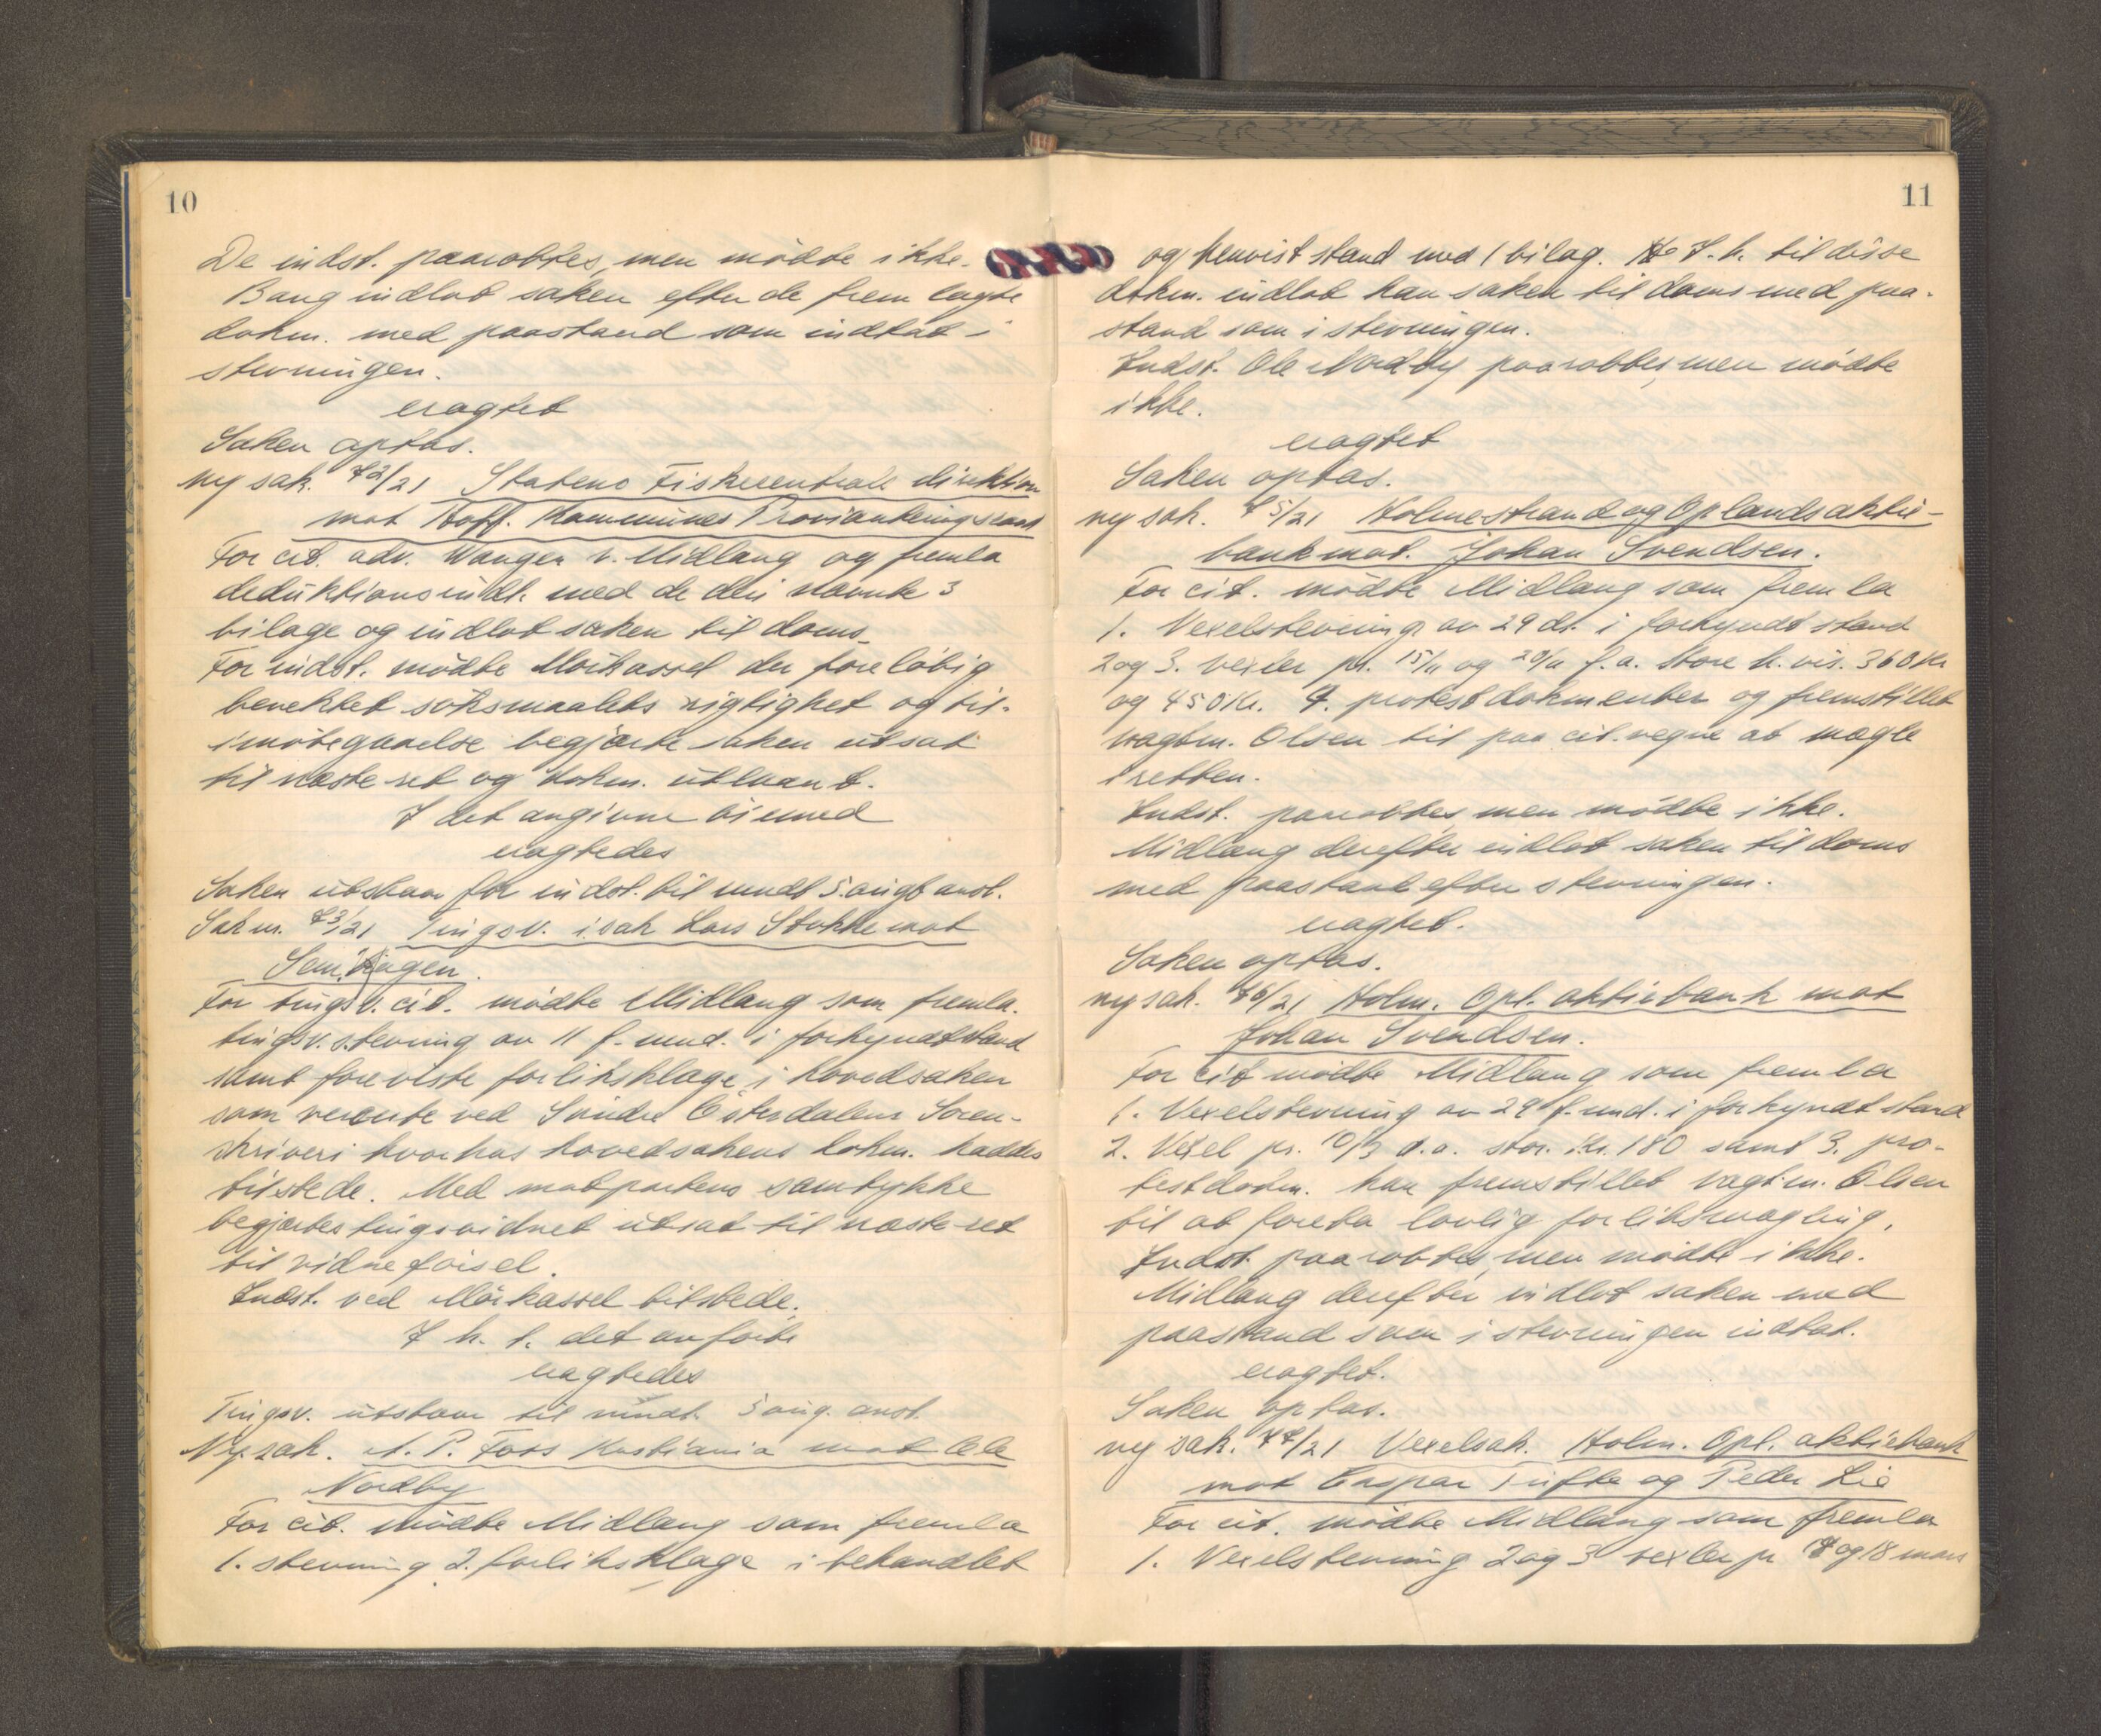 10
De indst. paaroptes, men mödte ikke.
Bang indlot saken efter de frem lagte
dokm. med paastand som indtat i
stevningen.
eragtet
Saken optas.
ny sak. 72/21 Statens Fiskecentrals direktion
mot Hoff. Kommunes Provianteringsraad
For cit. adv. Wangen v. Midlang og fremla
deduktionsindl. med de deri nævnte 3
bilage og indlot saken til doms.
For indst. mödte Mörkassel der foreløbig
benektet söksmaalets rigtighet og til
imötegaaelse begjærte saken utsat
til næste ret og dokm. utlaant.
I det angivne öiemed
eragtedes
Saken utstaar for indst. til mndt. 5. august anst.
Sak nr. 73/21 Tingsv. i sak Lars Stokke mot
Sem. Hagen.
For tingsv. cit. mödte Midlang som fremla.
tingsv. stevning av 11 f. mnd. i forkyndt stand
samt foreviste forliksklage i hovedsaken
som verserte ved Söndre Österdalens Soren-
skriveri hvorhos hovedsakens dokm. haddes
tilstede. Med motpartens samtykke
begjærtes tingsvidnet utsat til næste ret
til vidneförsel.
Indst. ved Mörkassel tilstede.
I h. t. det anförte
eragtedes
Tingsv. utstaar til mndt. 5 aug. anst.
Ny sak. A. P. Foss Kristiania mot Ole
Nordby
For cit. mödte Midlang som fremla
1. stevning 2. forliksklage i behandlet
11
og henvist stand med 1 bilag. I. h. til disse
dokm. indlot han saken til doms med paa-
stand som i stevningen.
Indst. Ole Nordby paaroptes, men mödte
ikke.
eragtet
Saken optas.
ny sak. 75/21 Holmestrand og Oplands aktie-
bank mot. Johan Svendsen.
For cit. mödte Midlang som fremla
1. Vexelstevning av 29 ds. i forkyndt stand
2 og 3. vexler pr. 15/11 og 20/11 f. a. store h. vis. 360 Kr
og 450 Kr. 4. protestdokumenter og fremstillet
vagtm. Olsen til paa cit. vegne at mægle
i retten.
Indst. paaroptes, men mödte ikke.
Midlang derefter indlot saken til doms
med paastand efter stevningen.
eragtet.
Saken optas.
ny sak. 76/21 Holm. Opl. aktiebank mot
Johan Svendsen.
For cit mödte Midlang som fremla
1. Vexelstevning av 29 f. mnd. i forkyndt stand
2. Vexel pr. 10/3 d. a. stor. Kr. 180 samt 3. pro-
testdokm. han fremstillet vagtm. Olsen
til at foreta lovlig forliksmægling.
Indst. paaroptes, men mödte ikke.
Midlang derefter indlot saken med
paastand som i stevningen indtat.
eragtet.
Saken optas.
ny sak. 77/21 Vexelsak. Holm. Opl. aktiebank
mot Casper Tufte og Peder Lie
For cit. mödte Midlang som fremla
1. Vexelstevning 2 og 3 vexler pr 7 og 18 mars